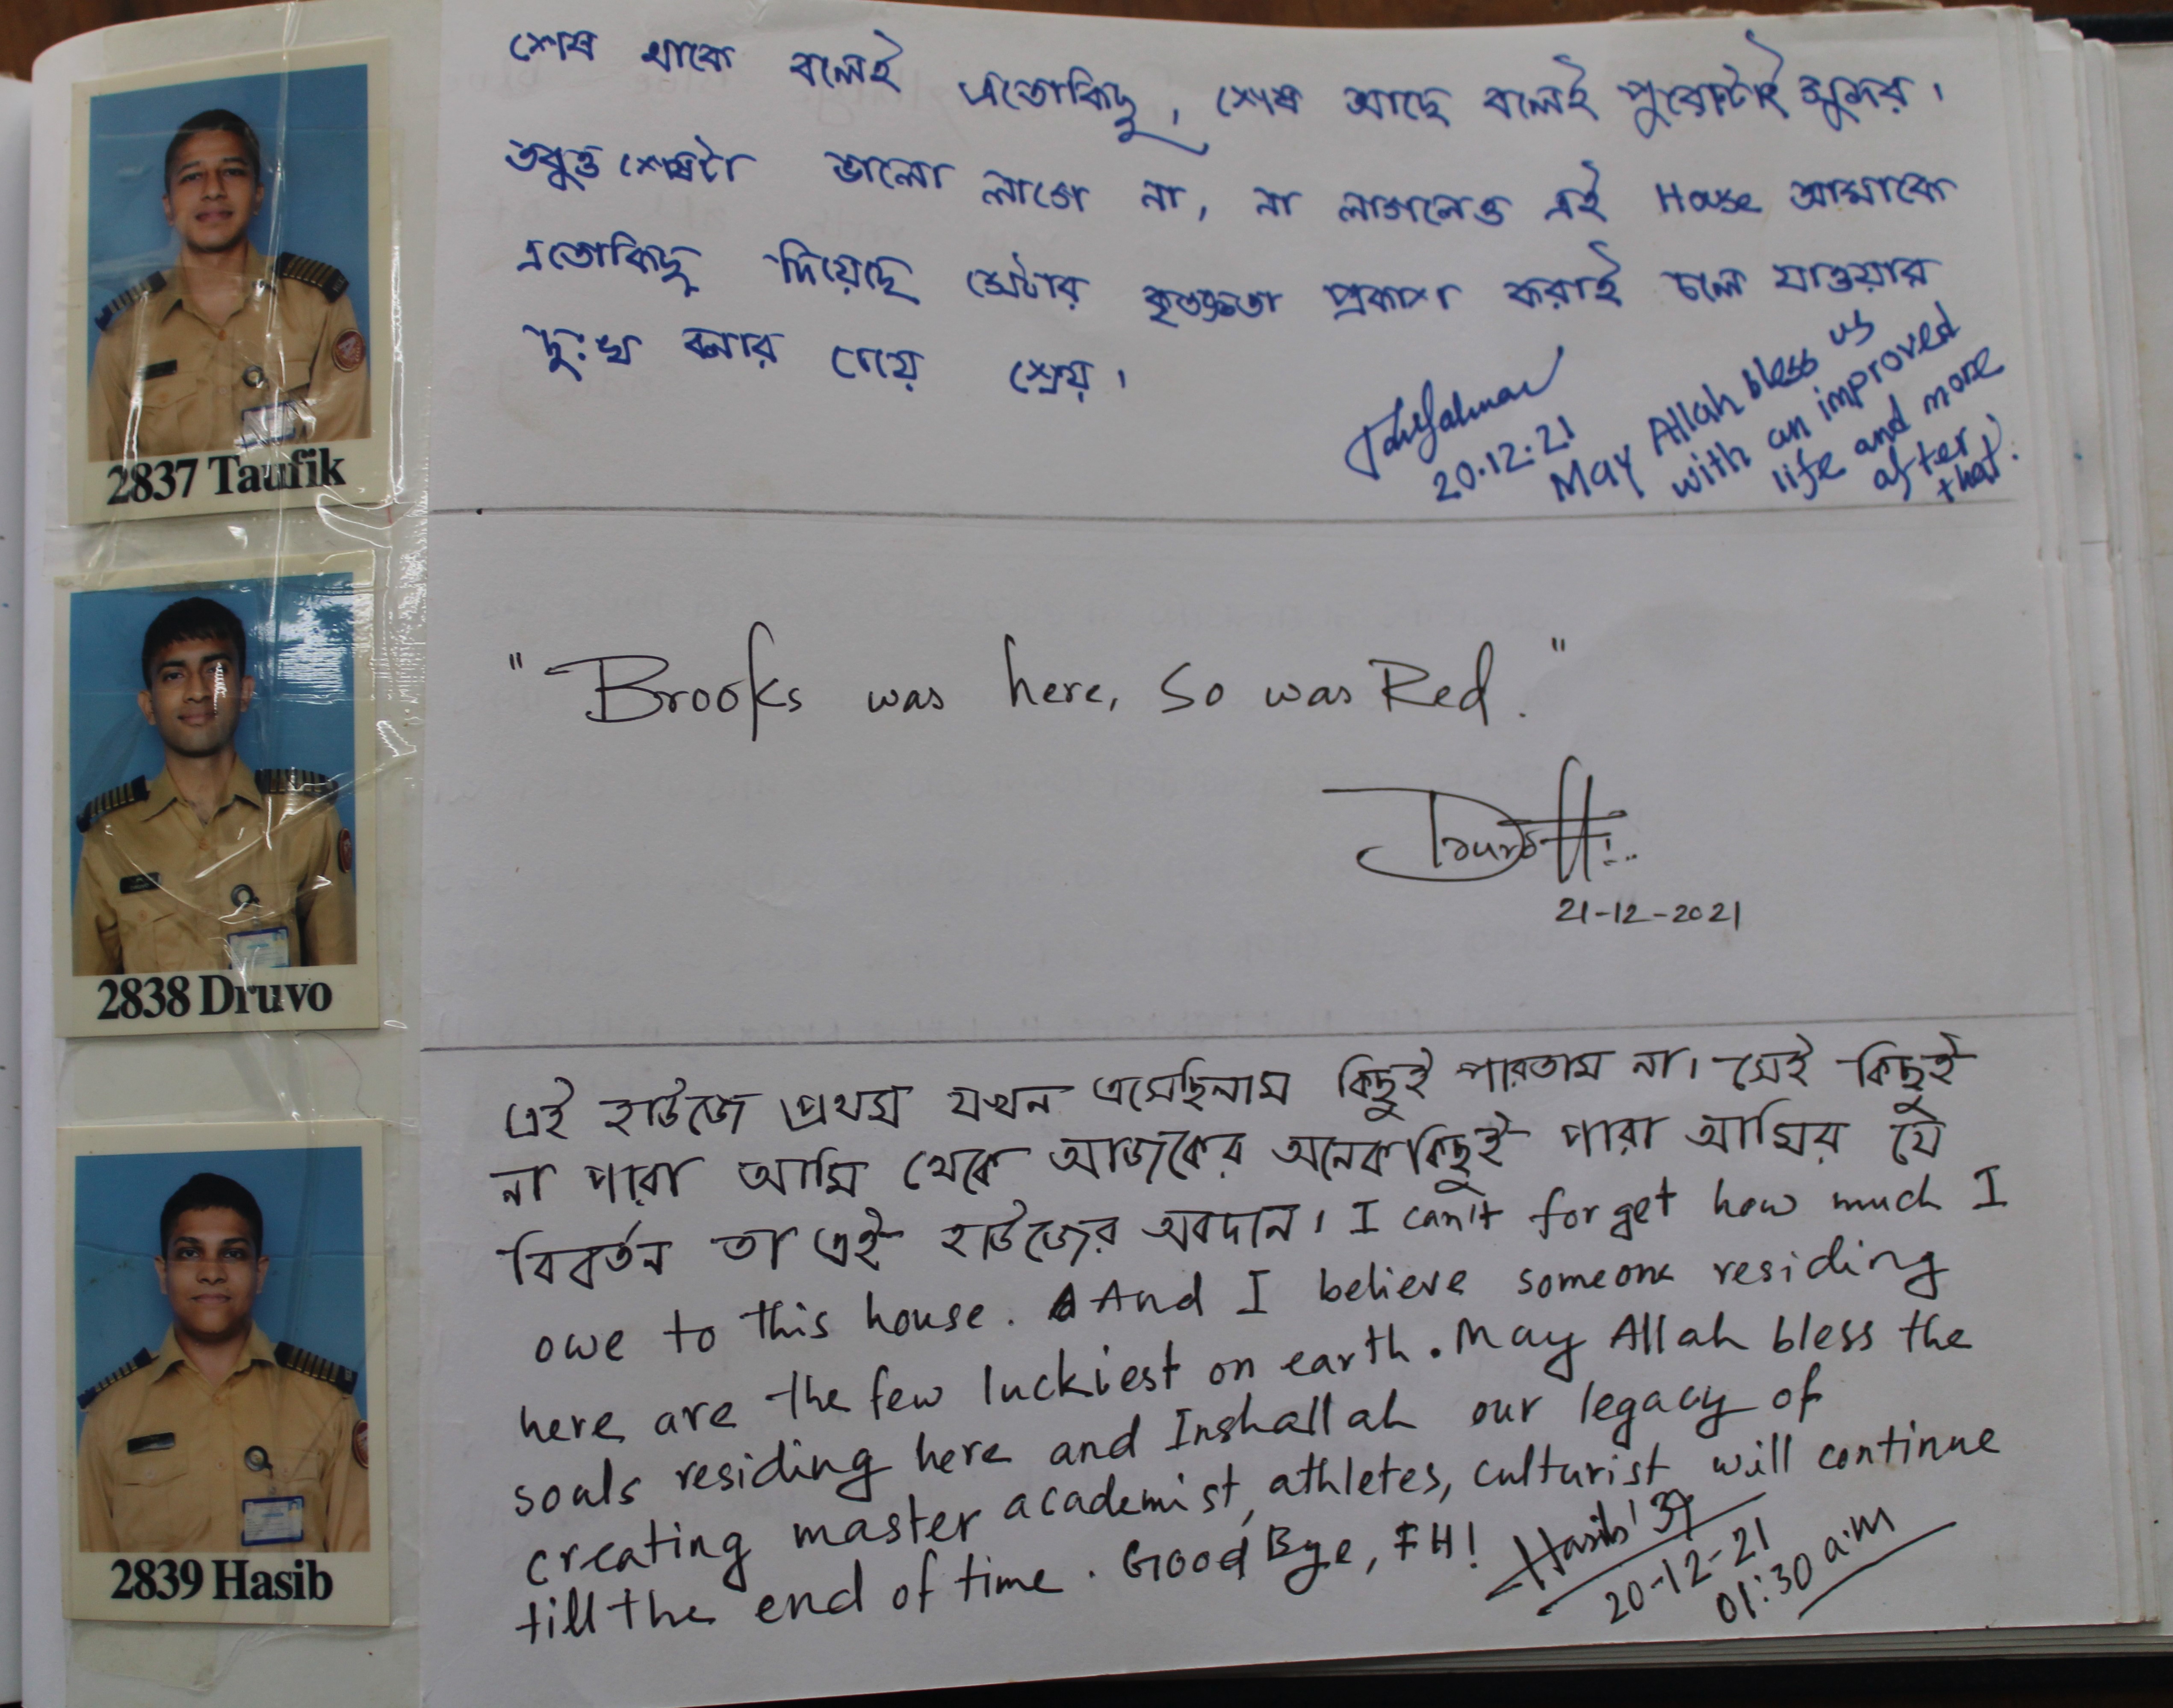 শেষ থাকে বলেই এতোকিছু, শেষ আছে বলেই পুরোটাই সুন্দর।
তবুও শেষটা ভালো লাগে না, না লাগলেও এই House আমাকে
এতোকিছু দিয়েছে সেটার কৃতজ্ঞতা প্রকাশ করাই চলে যাওয়ার
দুঃখ বলার চেয়ে শ্রেয়।
20.12.21
May Allah bless us
with an improved
life and more
after
that.
2837 Taufik
"Brooks was here, So was Red."
21-12-2021
2838 Druvo
এই হাউজে প্রথম যখন এসেছিলাম কিছুই পারতাম না। সেই কিছুই
না পারা আমি থেকে আজকের অনেককিছুই পারা আমির যে
বিবর্তন তা এই হাউজের অবদান। I can't forget how much I
owe to this house. And I believe someone residing
here are the few luckiest on earth. May Allah bless the
souls residing here and Inshallah our legacy of
creating master academist, athletes, culturist will continue
till the end of time. Good Bye, FH!
Hasib'37
20-12-21
01:30 a.m
2839 Hasib